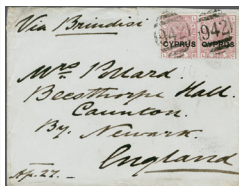 Via Brindisi
942 942
CYPRUS CYPRUS
Mrs Pollard.
Beesthorpe Hall.
Caunton.
By. Newark.
England
Ap. 27.